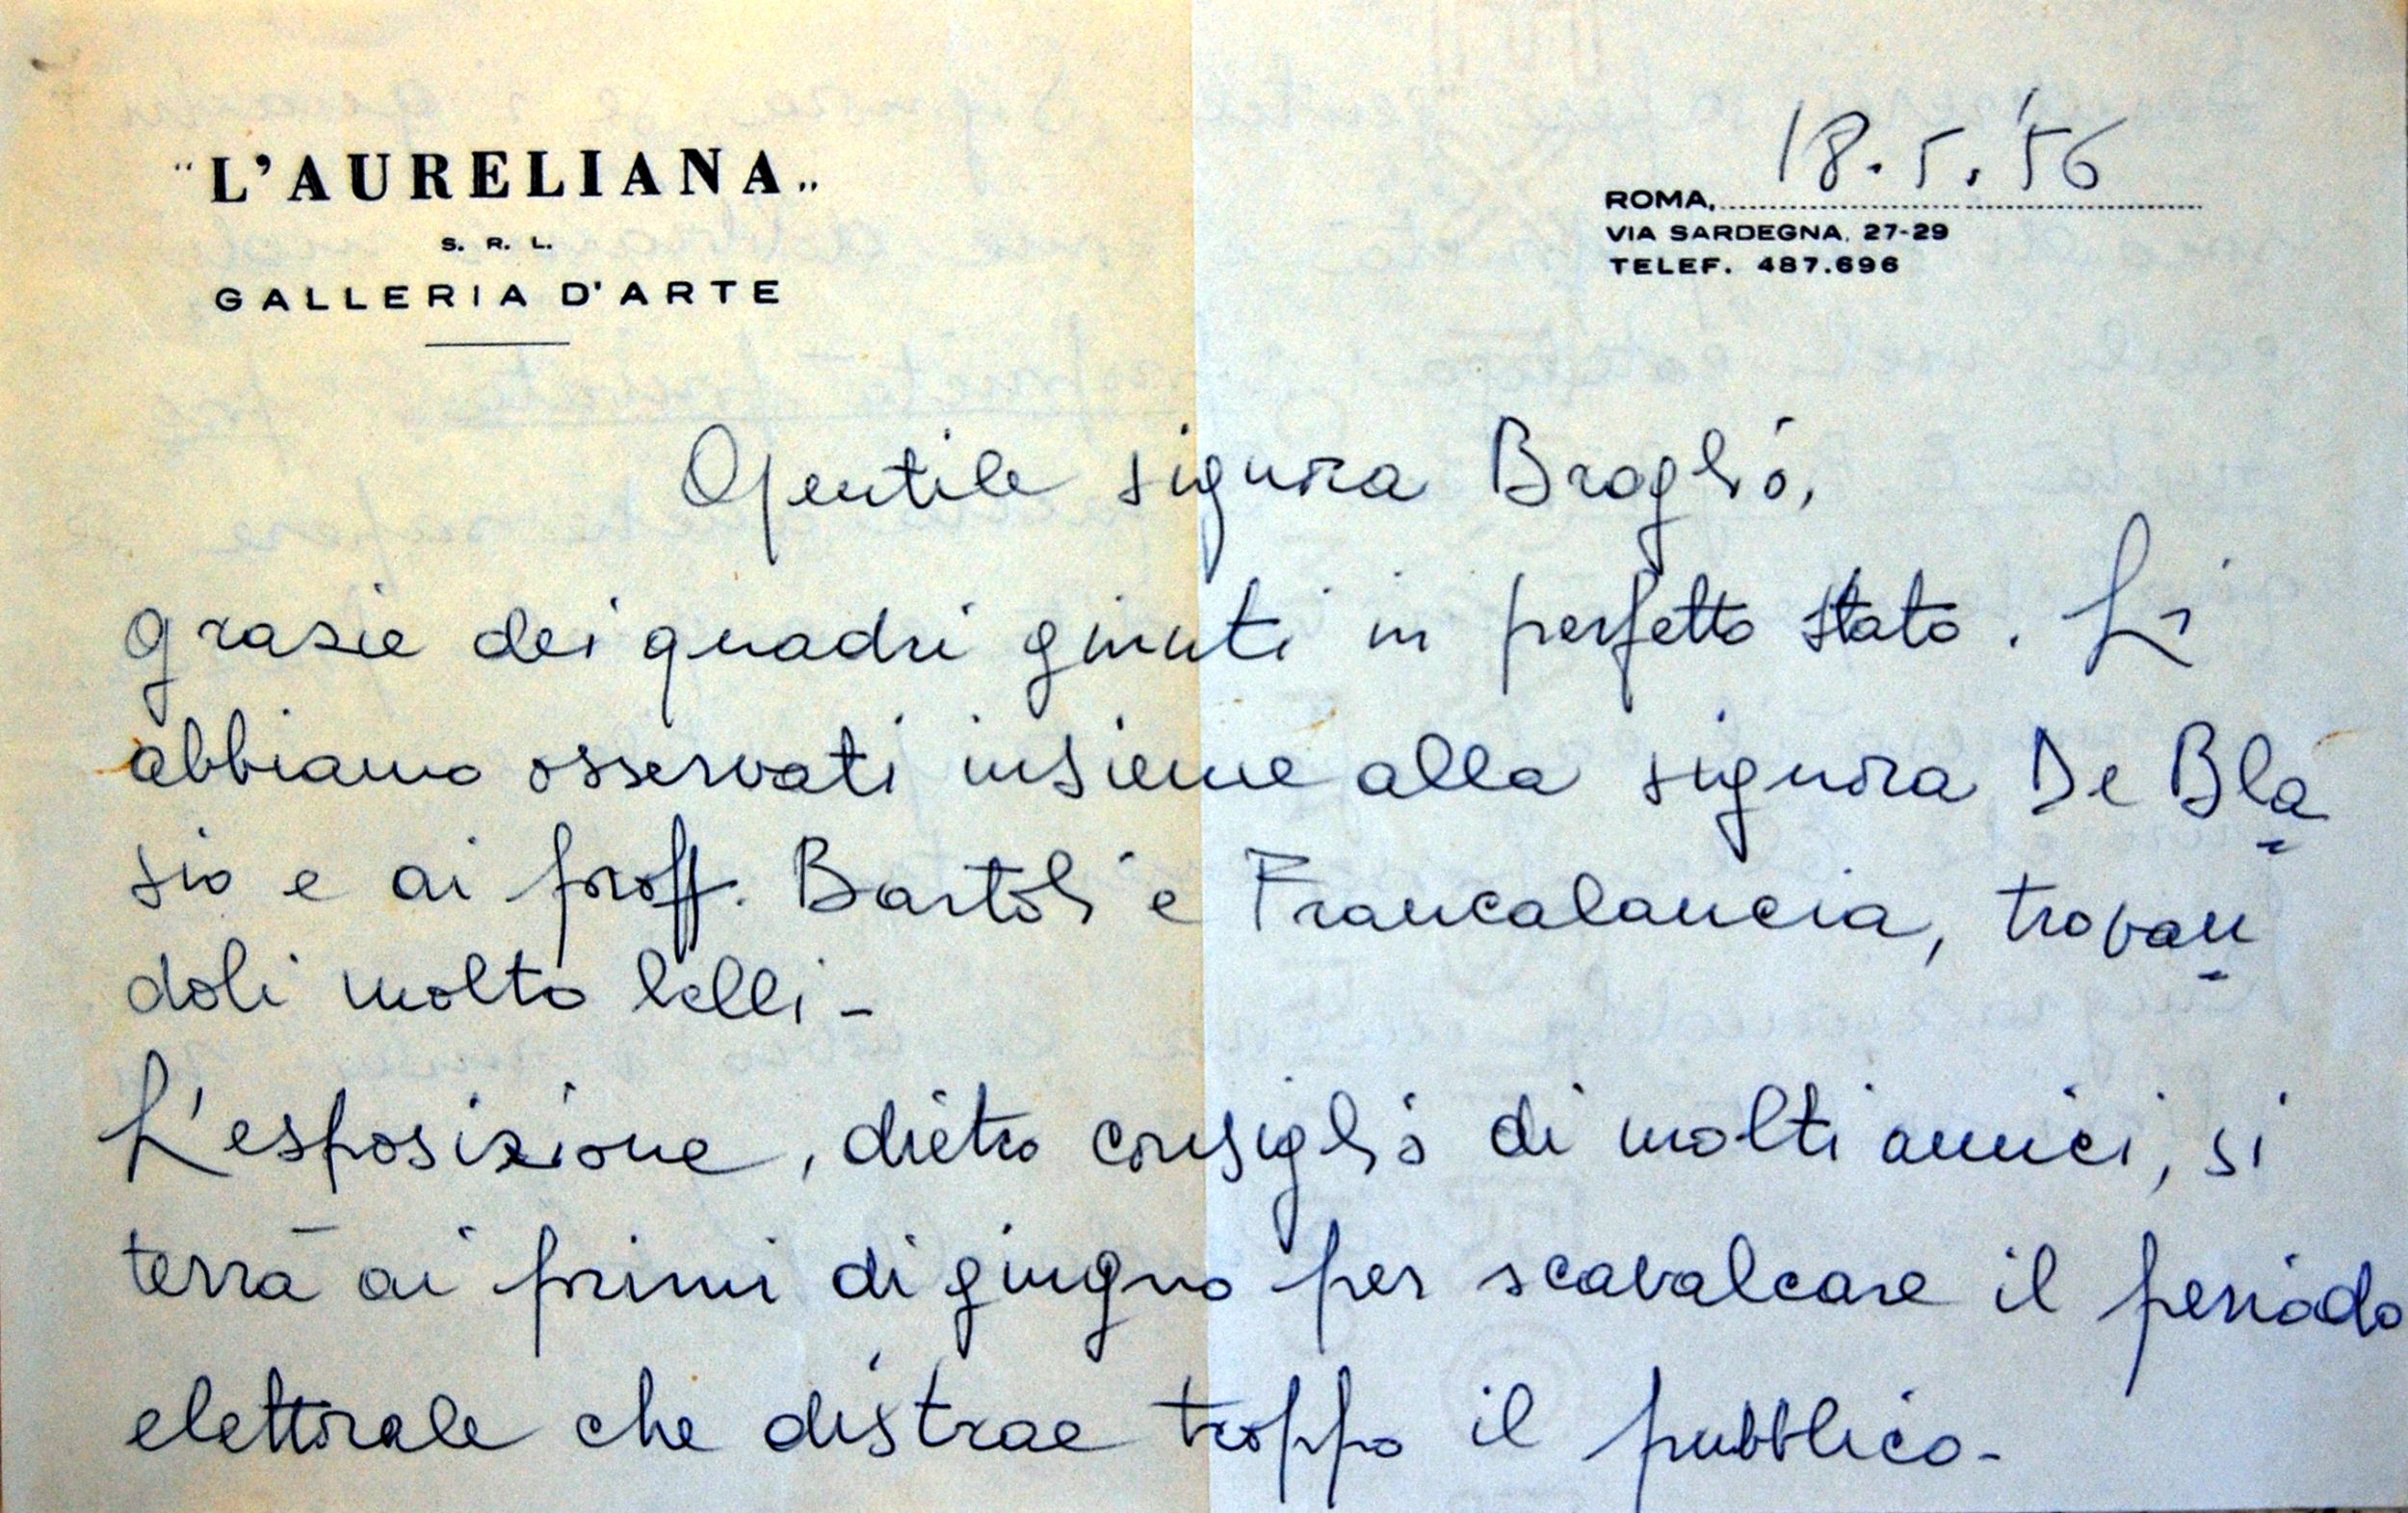 "L'AURELIANA„
S. R. L.
GALLERIA D'ARTE
18.5.'56
ROMA,
VIA SARDEGNA, 27-29
TELEF. 487.696
Gentile signora Broglio,
grazie dei quadri giunti in perfetto stato. Li
abbiamo osservati insieme alla signora De Bla=
sio e ai proff. Bartoli e Francalancia, trovan=
doli molto belli -
L'esposizione, dietro consiglio di molti amici, si
terrà ai primi di giugno per scavalcare il periodo
elettorale che distrae troppo il pubblico -